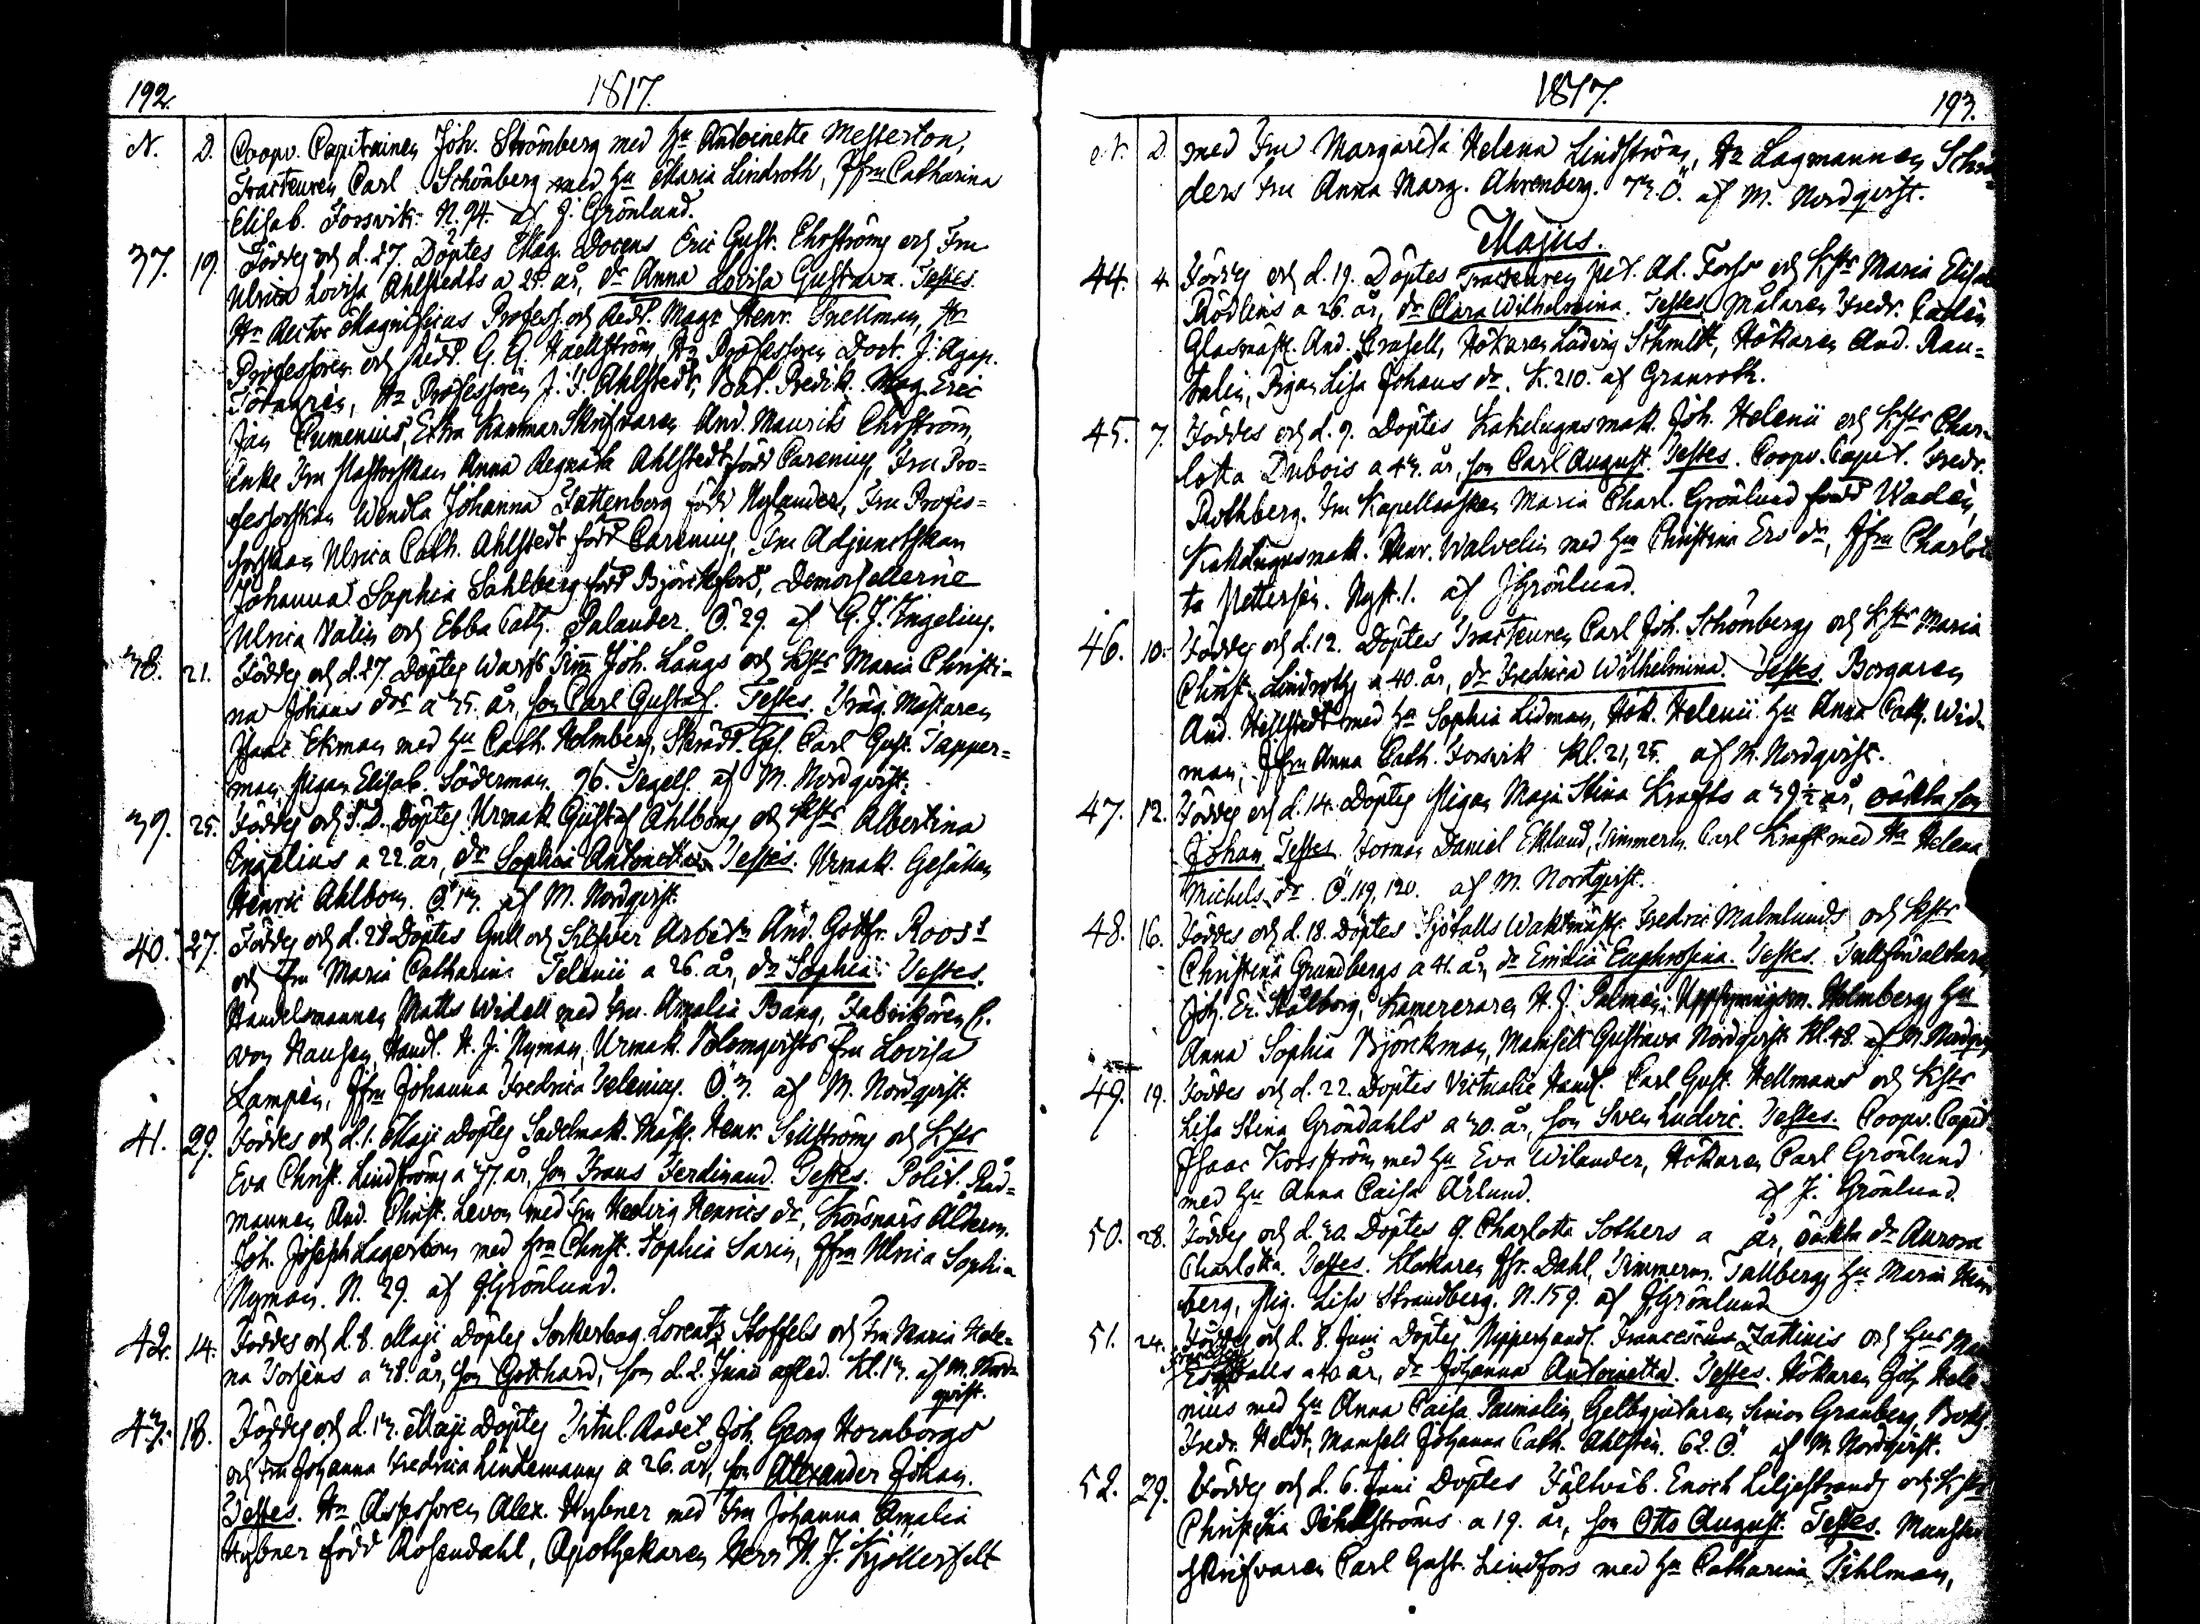 192. 1817.
N. D. Coopv. Capitainen Joh. Strömberg med Hu Antoinette Messerton,
Tracteuren Carl Schönberg med Hu Maria Lindroth, Jfrn Catharina
Elisab. Forsvik. N. 94. af J. Grönlund.
37. 19. Föddes och d. 27. Döptes Mag. Docens Eric Gust. Ehrström och Fru
Ulrica Lovisa Ahlstedts a 25. år, dr Anna Lovisa Gustava. Testes.
Hr Rector Magnificus Profess. och Redd. Magr Henr. Snellman, Hr
Professoren och Redd. G. G. Haellström, Hr Professoren Doct. J. Agap.
Törngrén, Hr Professoren J. F. Ahlstedt, Bat. Predik. Mag. Eric
Joh. Cumenius, Extra Kammar Skrifvaren And. Maurits Ehrström,
Enke Fru Pastorskan Anna Regina Ahlstedt född Carenius, Fru Pro=
fessorskan Wendla Johanna Fattenberg född Nylander, Fru Profes=
sorskan Ulrica Cath. Ahlstedt född Carenius, Fru Adjunctskan
Johanna Sophia Sahlberg född Björckegren, Demoisellerne
Ulrica Valin och Ebba Cath. Palander. Ö. 29. af G. J. Ingelius.
38. 21. Föddes och d. 27. Döptes Warfs Tim. Joh. Långs och Hstr Maria Christi=
na Johans drs a 35. år, son Carl Gustaf. Testes. Träg. Mästaren
Isaac Ekman med Hu Cath. Holmberg, Skrädd. Ges. Carl Gust. Tapper=
man, Pigan Elisab. Söderman. 96. Tegels. af M. Nordqvist.
39. 25. Föddes och S. D. Döptes Urmak. Gustaf Ahlboms och Hstr Albertina
Ingelius a 22. år, dr Sophia Antonetta. Testes. Urmak. Gesällen
Henric Ahlbom. Ö. 13. af M. Nordqvist.
40. 27. Föddes och d. 28 Döptes Gull och Silfver Arbetn And. Gottfr. Roos's
och Fru Maria Catharina Telenii a 26. år, dr Sophia. Testes.
Handelsmannen Matts Widell med Fru Amalia Bang, Fabrikören C.
von Hausen, Handl. H. J. Nyman, Urmak. Blomqvists Fru Lovisa
Lampén, Jfrn Johanna Fredrica Telenius. Ö. 3. af M. Nordqvist.
41. 29. Föddes och d. 1. Maji Döptes Sadelmak. Mäst. Henr. Sillströms och Hstr
Eva Christ. Lindströms a 37. år, son Frans Ferdinand. Testes. Polit. Råd=
mannen And. Christ. Levon med Fru Hedvig Henrics dr, Körsnärs Ålderm.
Joh. Joseph Lagerbom med Fru Christ. Sophia Sarin, Jfrn Ulrica Sophia
Nyman. N. 29. af J. Grönlund.
42. 14. Föddes och d. 8. Maji Döptes Sockerbag. Lorentz Stoffels och Fru Maria Hele=
na Forséns a 38. år, son Gotthard, som d. 2. Junii afled. Kl. 13. af M. Nord=
qvist.
43. 18. Föddes och d. 13. Maji Döptes Titul. Rådet Joh. Georg Hornborgs
och Fru Johanna Fredrica Lindemanns a 26. år, son Alexander Johan.
Testes. Hr Assessoren Alex. Hybner med Fru Johanna Amalia
Hybner född Rosendahl, Apothekaren Herr H. J. Kjöllerfelt
1817. 193.
N. D. med Fru Margareta Helena Lindström, Hr Lagmannen
ders Fru Anna Marg. Ahrenberg. 73. Ö. af M. Nordqvist.
Majus.
44. 4. Föddes och d. 19. Döptes Tracteuren Pet. Ad. Forss och Hstr Maria
Rödlins a 26. år, dr Clara Wilhelmina. Testes. Målaren Fredr.
Glasmäst. And. Crusell, Hökaren Ludvig Schmidt, Hökaren And. Rau=
talin, Pigan Lisa Johans dr. K. 210. af Granroth.
45. 7. Föddes och d. 9. Döptes Kakelugnsmak. Joh. Helenii och Hstr Char=
lotta Dubois a 43. år, son Carl August. Testes. Coopv. Capit. Fredr.
Rothberg. Fru Kapellanskan Maria Charl. Grönlund född Wadén,
Kakelugnsmak. Henr. Walvelin med Hu Christina Ers dr, Jfrn Charlot
ta Petterson. Nyst. 1. af J Grönlund.
46. 10. Föddes och d. 12. Döptes Tracteuren Carl Joh. Schönbergs och Hstr Maria
Christ. Lindroths a 40. år, dr Fredrica Wilhelmina. Testes. Borgaren
And. Hellstedt med Hu Sophia Lidman, Hök. Helenii Hu Anna Cath. Wid=
man, Jfrn Anna Cath. Forsvik Kl. 21, 25. af M. Nordqvist.
47. 12. Föddes och d. 14. Döptes Pigan Maja Stina Krafts a 39½ år, oäkta son
Johan Testes. Forman Daniel Eklund, Timmerm. Carl Kraft med Hu Helena
Michels dr. Ö. 119, 120. af M. Nordqvist.
48. 16. Föddes och d. 18. Döptes Sjötulls Waktmäst. Fredric Malmlunds och Hstr
Christina Grundbergs a 41. år, dr Emilia Euphrosina. Testes. Tullförvaltaren
Joh. Er. Stålborg, Kamereraren H. J. Palmén, Uppsyningsm. Holmbergs Hu
Anna Sophia Björckman, Mamsell Gustava Nordqvist. Kl. 48. af M. Nordqv
49. 19. Föddes och d. 22. Döptes Victualie Handl. Carl Gust. Hellmans och Hstr
Lisa Stina Gröndahls a 30. år, son Sven Ludvic. Testes. Coopv. Capit.
Isaac Korsström med Hu Eva Wilander, Hökaren Carl Grönlund
med Hu Anna Caisa Ärlund. af J. Grönlund.
50. 28. Föddes och d. 30. Döptes Q. Charlotta Sothers a år, oäkta dr Aurora
Charlotta. Testes. Klockaren Dahl, Timmerm. Tallbergs Hu Maria
berg, Pig. Lisa Strandberg. N. 159. af J. Grönlund
51. 24. Föddes och d. 8. Junii Döptes Nipperhandl. Francescus Zattinis och Hus
a 40 år, dr Johanna Antoinetta. Testes. Hökaren Joh. Hele
nius med Hu Anna Caisa Paimalin, Gelbgjutaren Simon Granberg,
Fredr. Heldt, Mamsell Johanna Cath. Ahlstén. 62. Ö. af M. Nordqvist.
52. 29. Föddes och d. 6. Junii Döptes Fältväb. Enoch Liljestrands och Hstr
Christina a 19. år, son Otto August. Testes.
skrifvaren Carl Gust. Lindfors med Hu Catharina Tihlman,